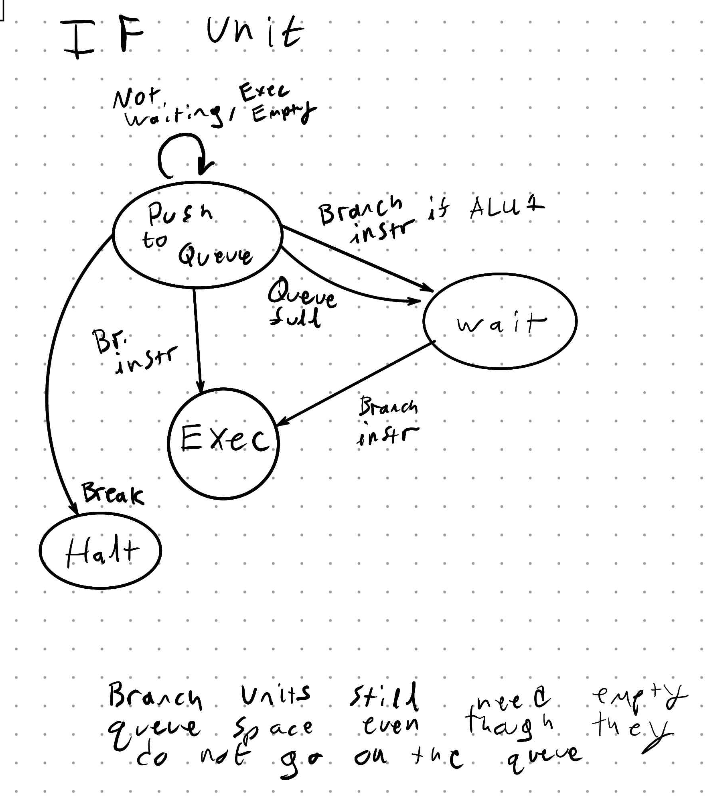 IF Unit
Not Exec
waiting, Empty
Push
to Queue
Branch if ALU1
instr
Queue
full
wait
Br.
instr
Exec
Branch
instr
Break
Halt
Branch Units still need empty
queue space even though they
do not go on the queue